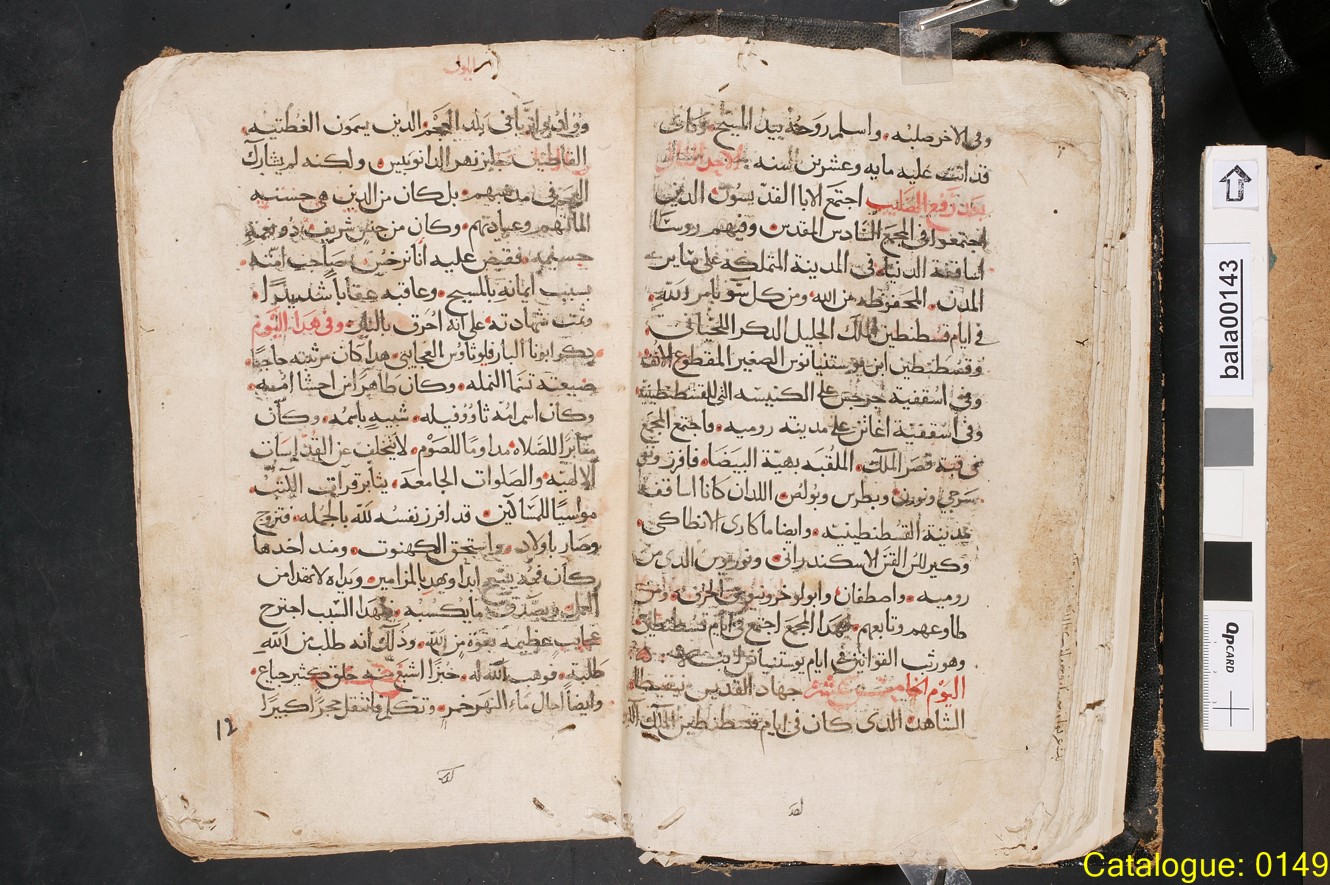 وفي الاخر صلبه. واسلم روحه بيد المسيح. وكان
قد اتت عليه مايه وعشرين سنه. الاحد
بعد رفع الصليب اجتمع الابا القديسون الدين
اجتمعوا في المجمع السادس المقدس. وفيهم روسا
اساقفة الدنيا. في المدينة المتملكه على ساير
المدن. المحفوظه من الله. ومن كل سو بامر الله.
في ايام قسطنطين الملك الجليل الدكر اللحياني.
وقسطنطين ابن يوستنيانوس الصغير المقطوع الانف
وفي اسقفية جرجس على الكنيسه التي للقسطنطينيه
وفي اسقفية اغاثن على مدينة روميه. فاجتمع المجمع
في قبة قصر الملك. الملقبه بهية البيضا. فافرز ونفي
سرجي ونورن. وبطرس وبولص. اللدان كانا اساقفة
مدينة القسطنطينيه. وايضا ماكاري الانطاكي.
وكير للس القس الاسكندراني. ونوريوس الدي من
روميه. واصطفان وابولوخرونيوس الخزن. ومن
طاوعهم وتابعهم. فهدا المجمع اجتمع في ايام قسطنطين
وهو رتب القوانين في ايام يوستنيانس ابنه.
اليوم الخامس عشر جهاد القديس نيقيطا
الشاهد. الدي كان في ايام قسطنطين الملك
ايلول
في بلد العجم. الدين يسمون الغطتيه.
القاطنين جايز نهر الدانوبيس. ولكنه لم يشارك
العجم في مدهبهم. بل كان من الدين هي حسنه
امالهم وعبادتهم. وكان من جنس شريف. دو نعمة
جسيمه. فقبض عليه اثانرخس. صاحب امته
بسبب ايمانه بالمسيح. وعاقبه عقاباً شديدًا.
وتمت شهادته على انه احرق بالنار. وفي هدا اليوم
دكر ابونا البار فيلوثاوس العجايبي. هدا كان
ضيعة تسما النمله. وكان طاهرًا من احشا امه.
وكان اسم امه ثاودوفيله. شبيه باسمه. وكان
مثابرًا للصلاه. مداومًا للصوم. لا يتخلف عن القداسات
الالاهيه. والصلوات الجامعه. يثابر قراة الكتب.
مواسيًا للمساكين. قد افرز نفسه لله بالجمله. فتزوج
وصار باولاد. واستحق الكهنوت. ومند اخدها
كان فمه يسبح ابدًا ويهد بالمزامير. ويداه لا تهدا من
العمل ويصدق ما يكسبه. فهدا السبب اجترح
عجايب عظيمه بقوة من الله. ودلك انه طلب من الله
طلبه. فوهب الله له. خبزًا اشبع منه خلق كثير جياع.
وايضاً احال ماء النهر خمر. وتكلم فانتقل حجرًا كبيرًا
12